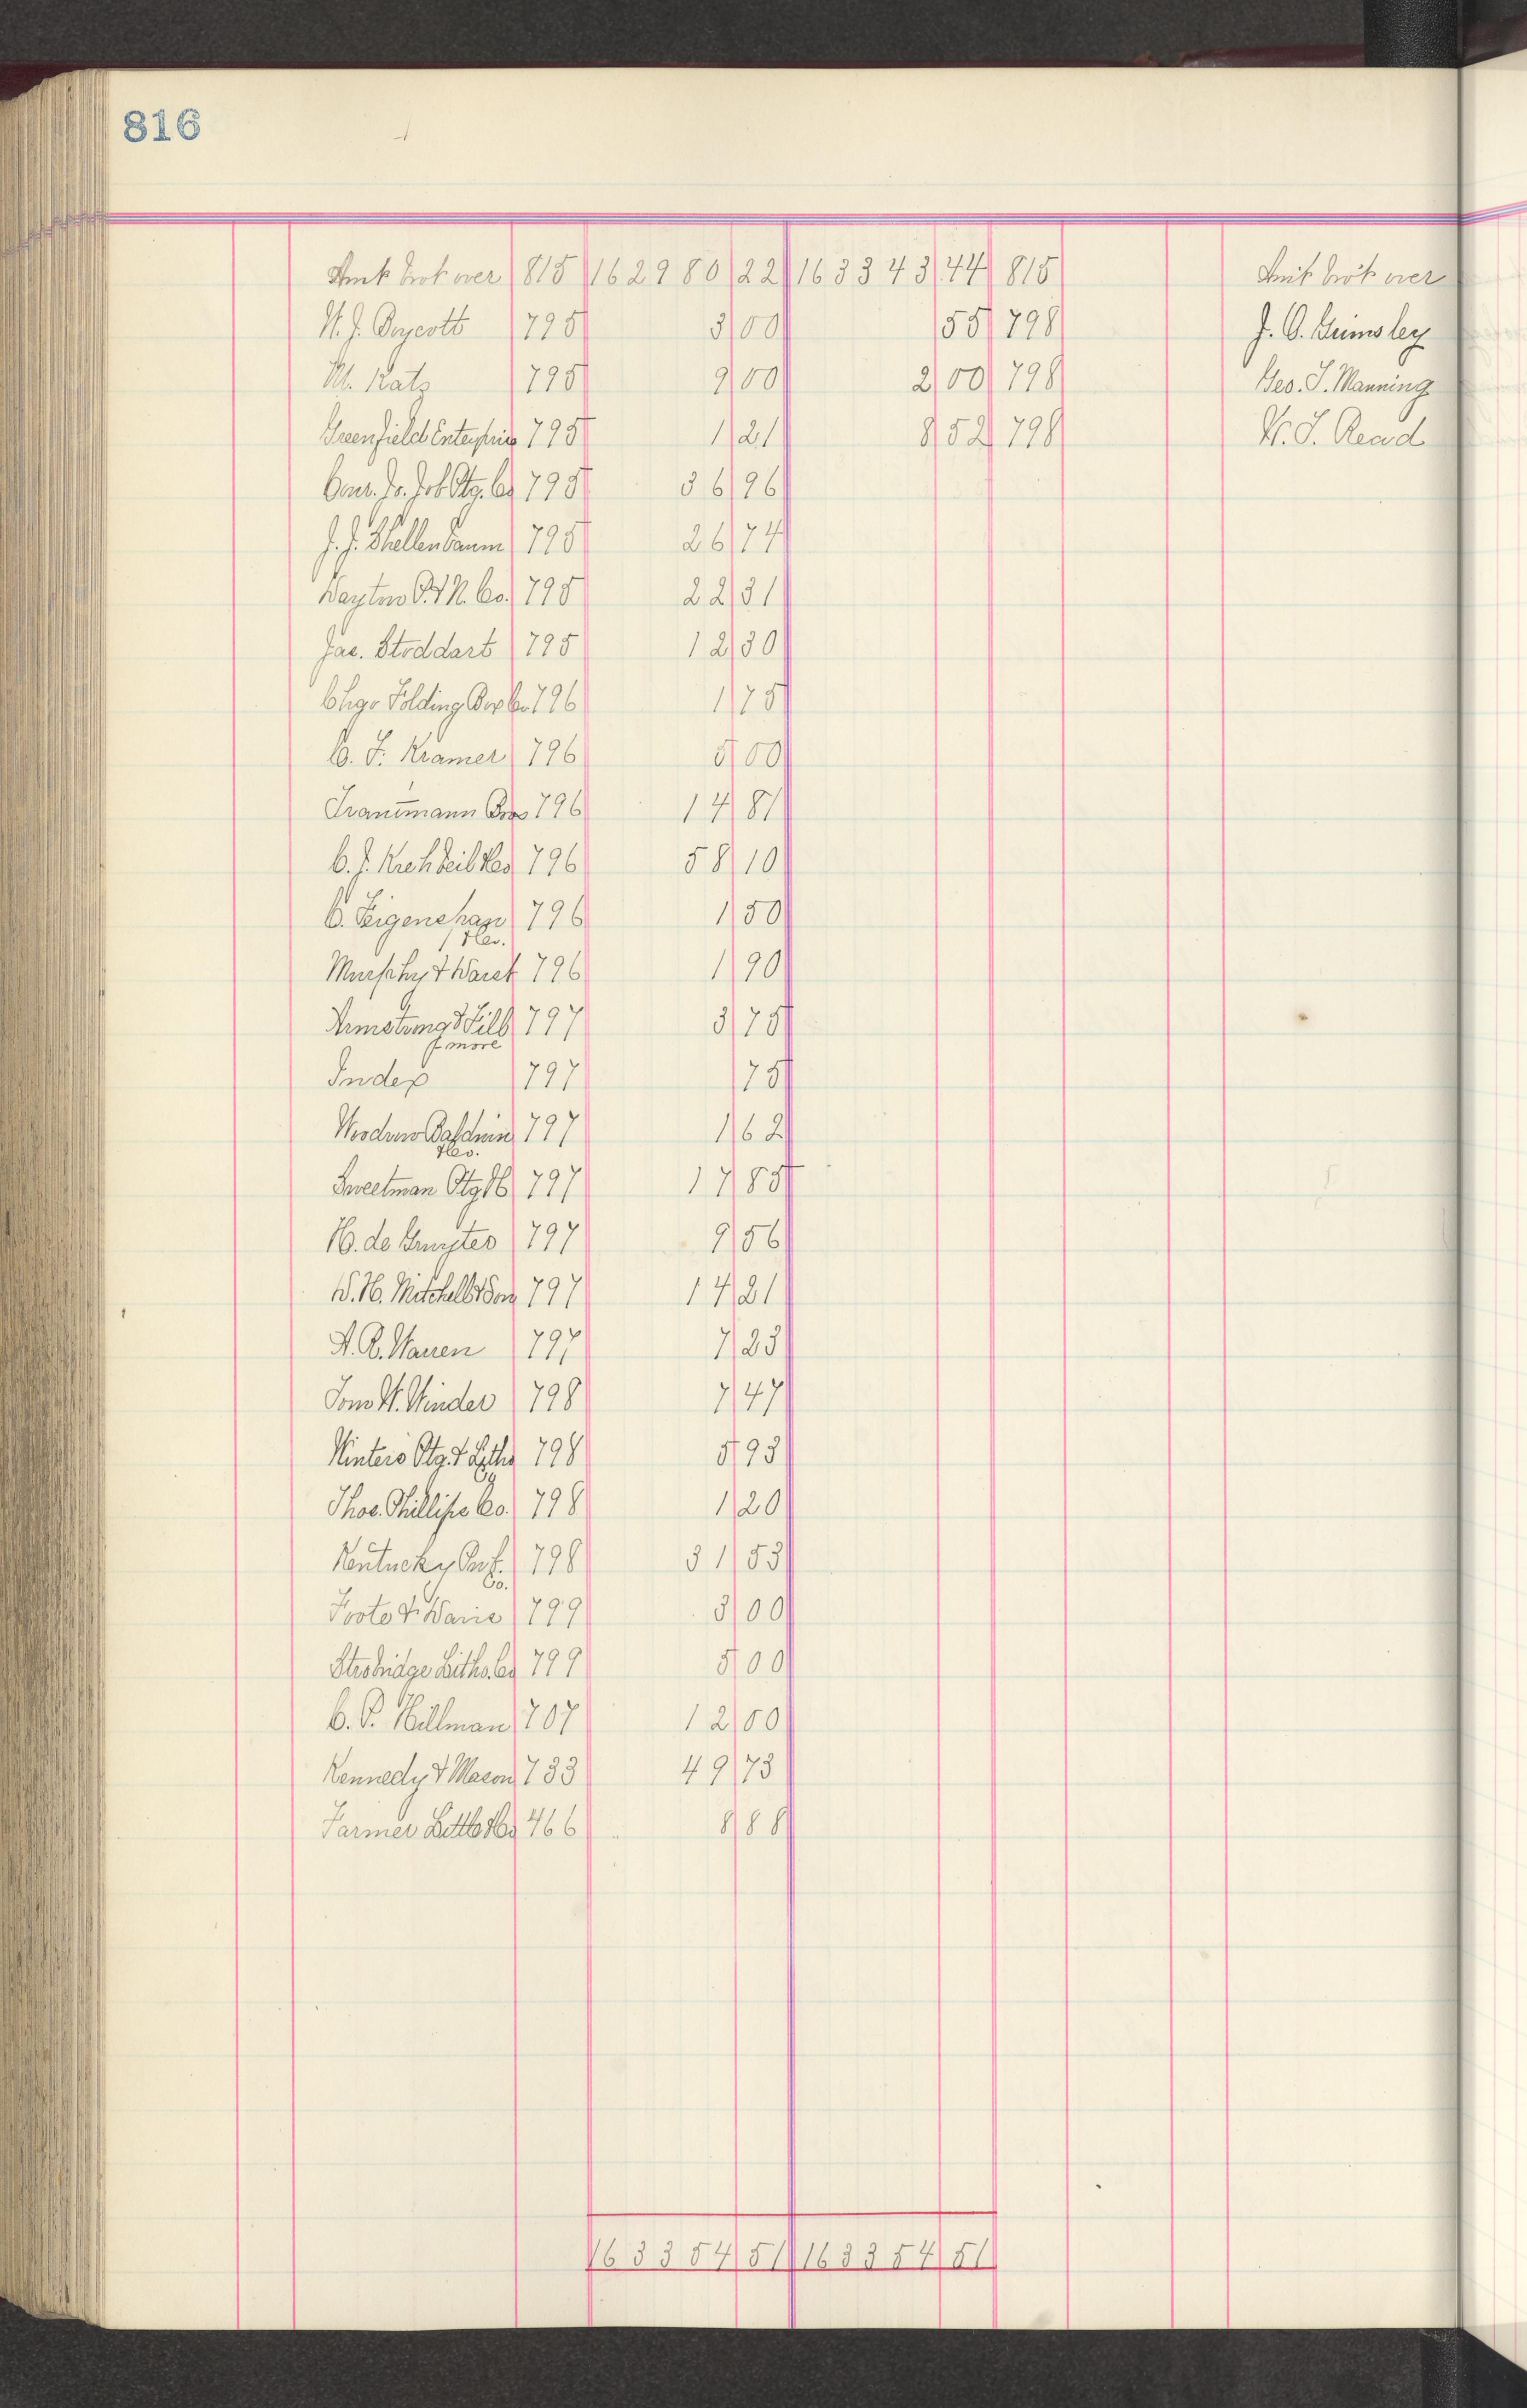 816
Amt brot over 815 162980 22 163343 44 815 Amt brot over
W. J. Boycott 795 3 00 55 798 J. O. Grimsley
M. Katz 795 9 00 2 00 798 Geo. S. Manning
Greenfield Enterprise 795 1 21 8 52 798 W. S. Read
795 36 96
J. J. Shellenbaum 795 26 74
Dayton P. & N. Co. 795 22 31
Jas. Stoddart 795 12 30
Chgo Folding Box Co 796 1 75
C. F. Kramer 796 5 00
Trautmann Bros 796 14 81
C. J. Krehbiel & Co 796 58 10
C. Feigenspan 796 1 50
& Co.
Murphy & Ward 796 1 90
Armstrong & Fill 797 3 75
more
Index 797 75
Woodrow Baldwin 797 1 62
& Co.
Sweetman Ptg Co 797 17 85
C. de Gruyter 797 9 56
W. H. Mitchell & Son 797 14 21
A. R. Warren 797 7 23
Tom W. Winder 798 7 47
Winters Ptg. & Litho 798 5 93
Co
Thos. Phillips Co. 798 1 20
Kentucky Pub. 798 31 53
Co.
Foote & Davis 799 3 00
Strobridge Litho. Co 799 5 00
C. P. Hillman 707 12 00
Kennedy & Mason 733 49 73
Farmer Little & Co 466 8 88
163354 51 163354 51